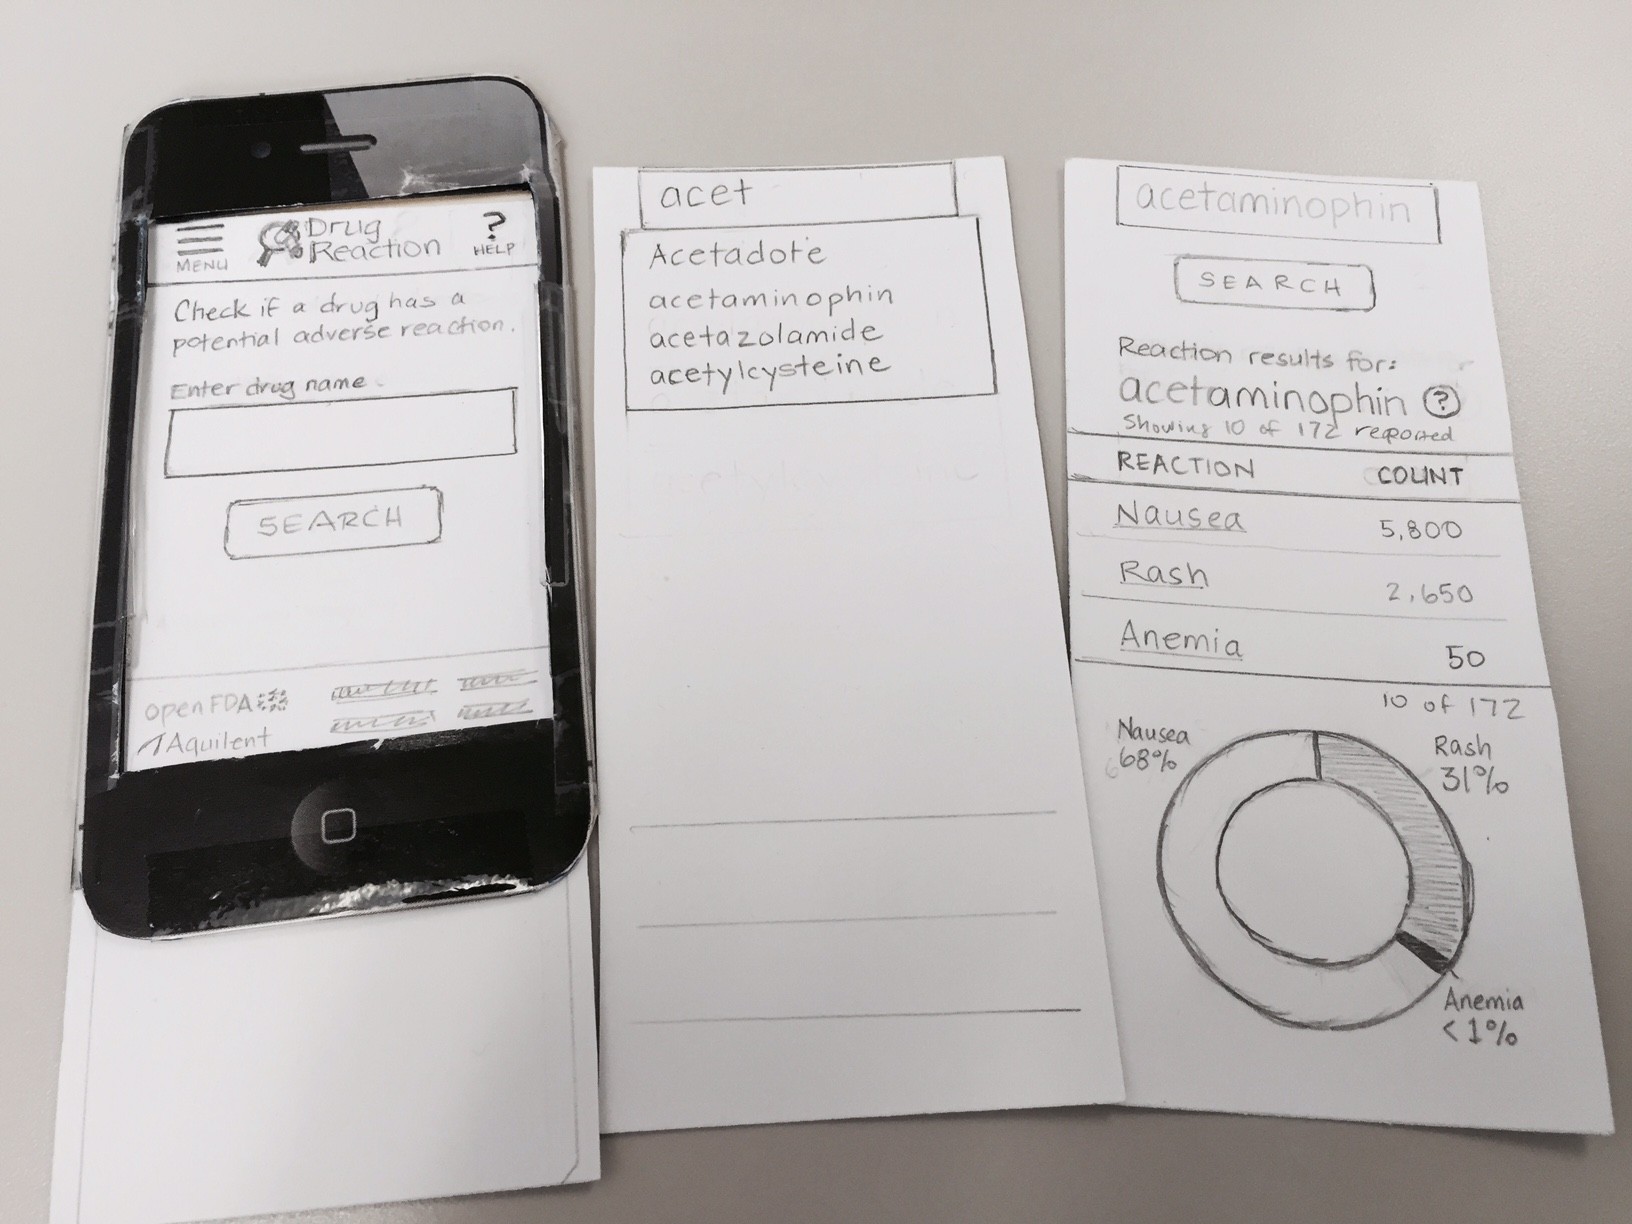 MENU
Drug
Reaction
?
HELP
Check if a drug has a
potential adverse reaction.
Enter drug name
SEARCH
openFDA
Aquilent
acet
Acetadote
acetaminophin
acetazolamide
acetylcysteine
acetaminophin
SEARCH
Reaction results for:
acetaminophin ?
Showing 10 of 172 reported
REACTION COUNT
Nausea 5,800
Rash 2,650
Anemia 50
10 of 172
Nausea
68%
Rash
31%
Anemia
< 1%